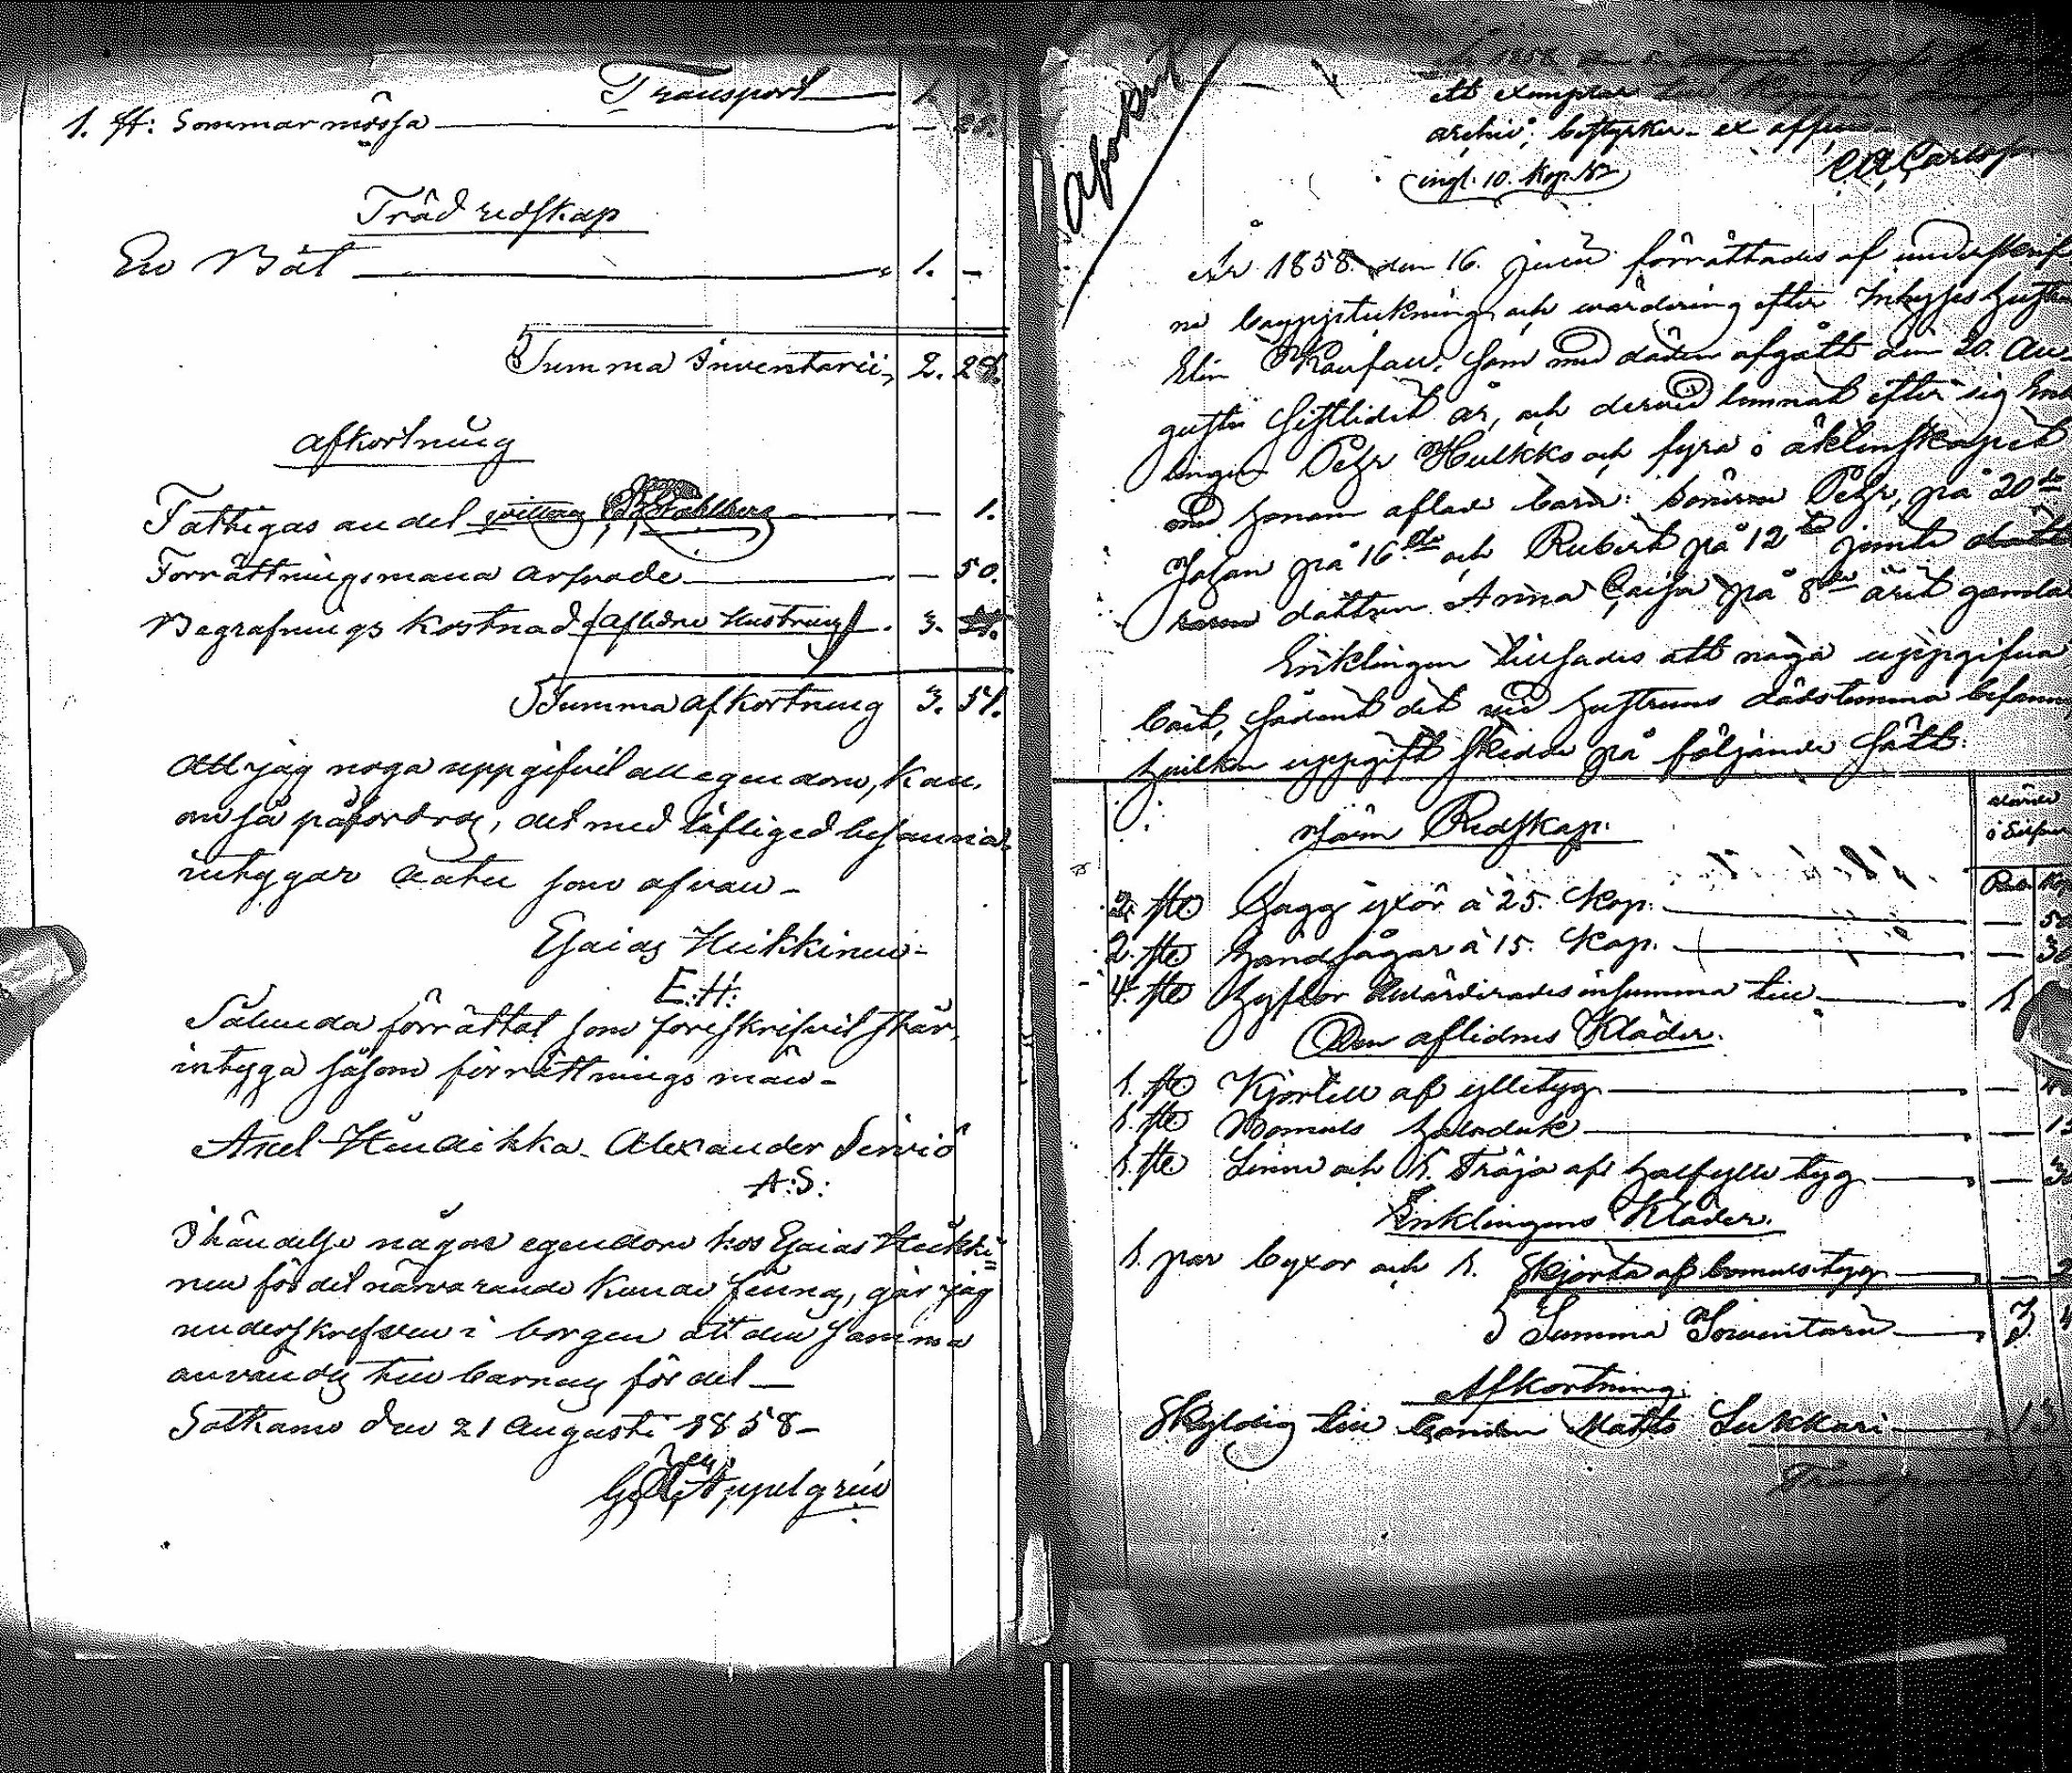 Transport 1.
1. st: Sommarmössa — 28.
Träd redskap
En Båt 1. —
Summa Inventarii, 2. 28.
afkortning
Fattigas andel qvitterag Wahlberg — 1.
Förrättningsmanna arfvode — 50.
Begrafnings kostnad (aflidne Hustrun) 3.
Summa afkortning 3. 51.
Att jag noga uppgifvit all egendom, kan,
om så påfordras, det med låfliged besanna
intygar
Esaias Heikkinen
E.H:
Sålunda förrättat som föreskrifvit står,
intyga såsom förrättnings män
Axel Alexander Sirviö
A:S:
I händelse någon egendom hos Esaias Heikki
nen för det närvarande kunde finnas, går jag
underskrefven i borgen att den samma
användes till barnens fördel —
Sotkamo den 21 Augusti 1858 —
Appelgrén
afskrift
1858
ett exemplar till
archiv; bestyrker ex officio
ingl. 10. Kop. Sr
År 1858 den 16. Juni förrättades af underskrif
ne bouppteckning och värdering efter Inhyses hustru
Elin som med döden afgått den 20. Au
gusti sistlidit år, och dervid lemnat efter sig Enk
lingen Pehr Hulkko och fyra i äktenskapet
med honom aflade barn: sönerna Pehr, på 20de
Johan på 16de och Robert på 12te jemte
dottren Anna Caisa på 8de året gamla
Enklingen tillsades att noga uppgifva
boet, sådant det vid hustruns dödstimma befanns
hvilken uppgift skedde på följande sätt:
Järn Redskap.
2. st. hugg yxor à 25. Kop. — 50
2. st. handsågar à 15. Kop. — 30
4. st. hyflor värderades insumma till 1
Den aflidnes Kläder.
1. st. Kjortel af ylletyg —
1. st. Bomuls halsduk —
1. st. Linne och 1. Tröja af halfylle tyg —
Enklingens Kläder.
1. par byxor och 1. Skjorta af bomulstyg —
Summa Inventarii 3
Afkortning.
Skyldig till bonden Matts Lukkari